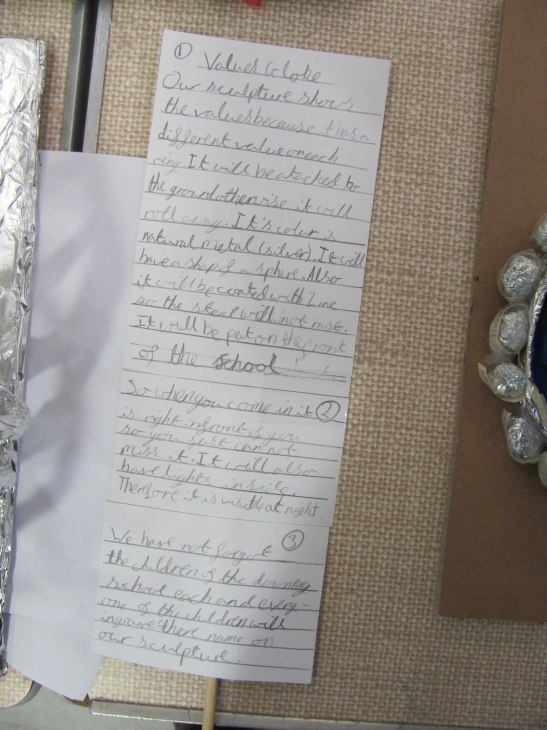 ① Values Globe
Our sculpture shows
the values because it has a
different value on each
ring It will be atached to
the ground otherwise it will
roll away. It's colur is
natural metal (silver). It will
have a shape of a sphere. Also
it will be coated with Zinc
so the steal will not rust.
It will be put on the front
of the school
So when you come in it ②
is right infront of you
so you just can not
miss it. It will also
have lights inside.
Therfore it is visible at night.
③
We have not forgot
the children of the downey
school each and every-
one of the children will
ingrave there name on
our sculpture.